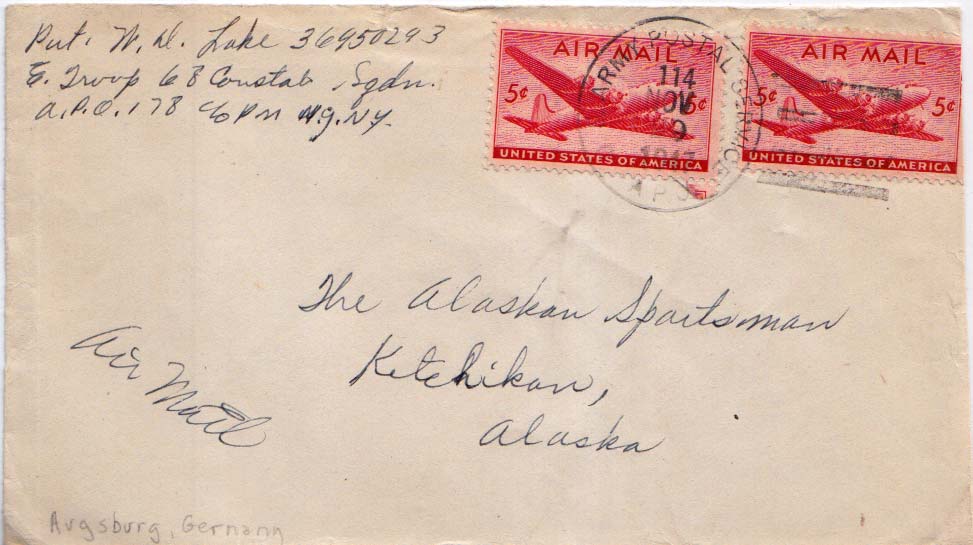 Pvt. W. D. Lake 36950293
E. Troop 68 Constab Sqdn.
A.P.O. 178 c/o P M N.Y. N.Y.
AIR MAIL
5¢ 5¢
UNITED STATES OF AMERICA
AIR MAIL
5¢ 5¢
UNITED STATES OF AMERICA
ARMY POSTAL SERVICE
114
NOV
9
APO
The Alaskan Sportsman
Ketchikan,
Alaska
Air Mail
Augsburg, Germany